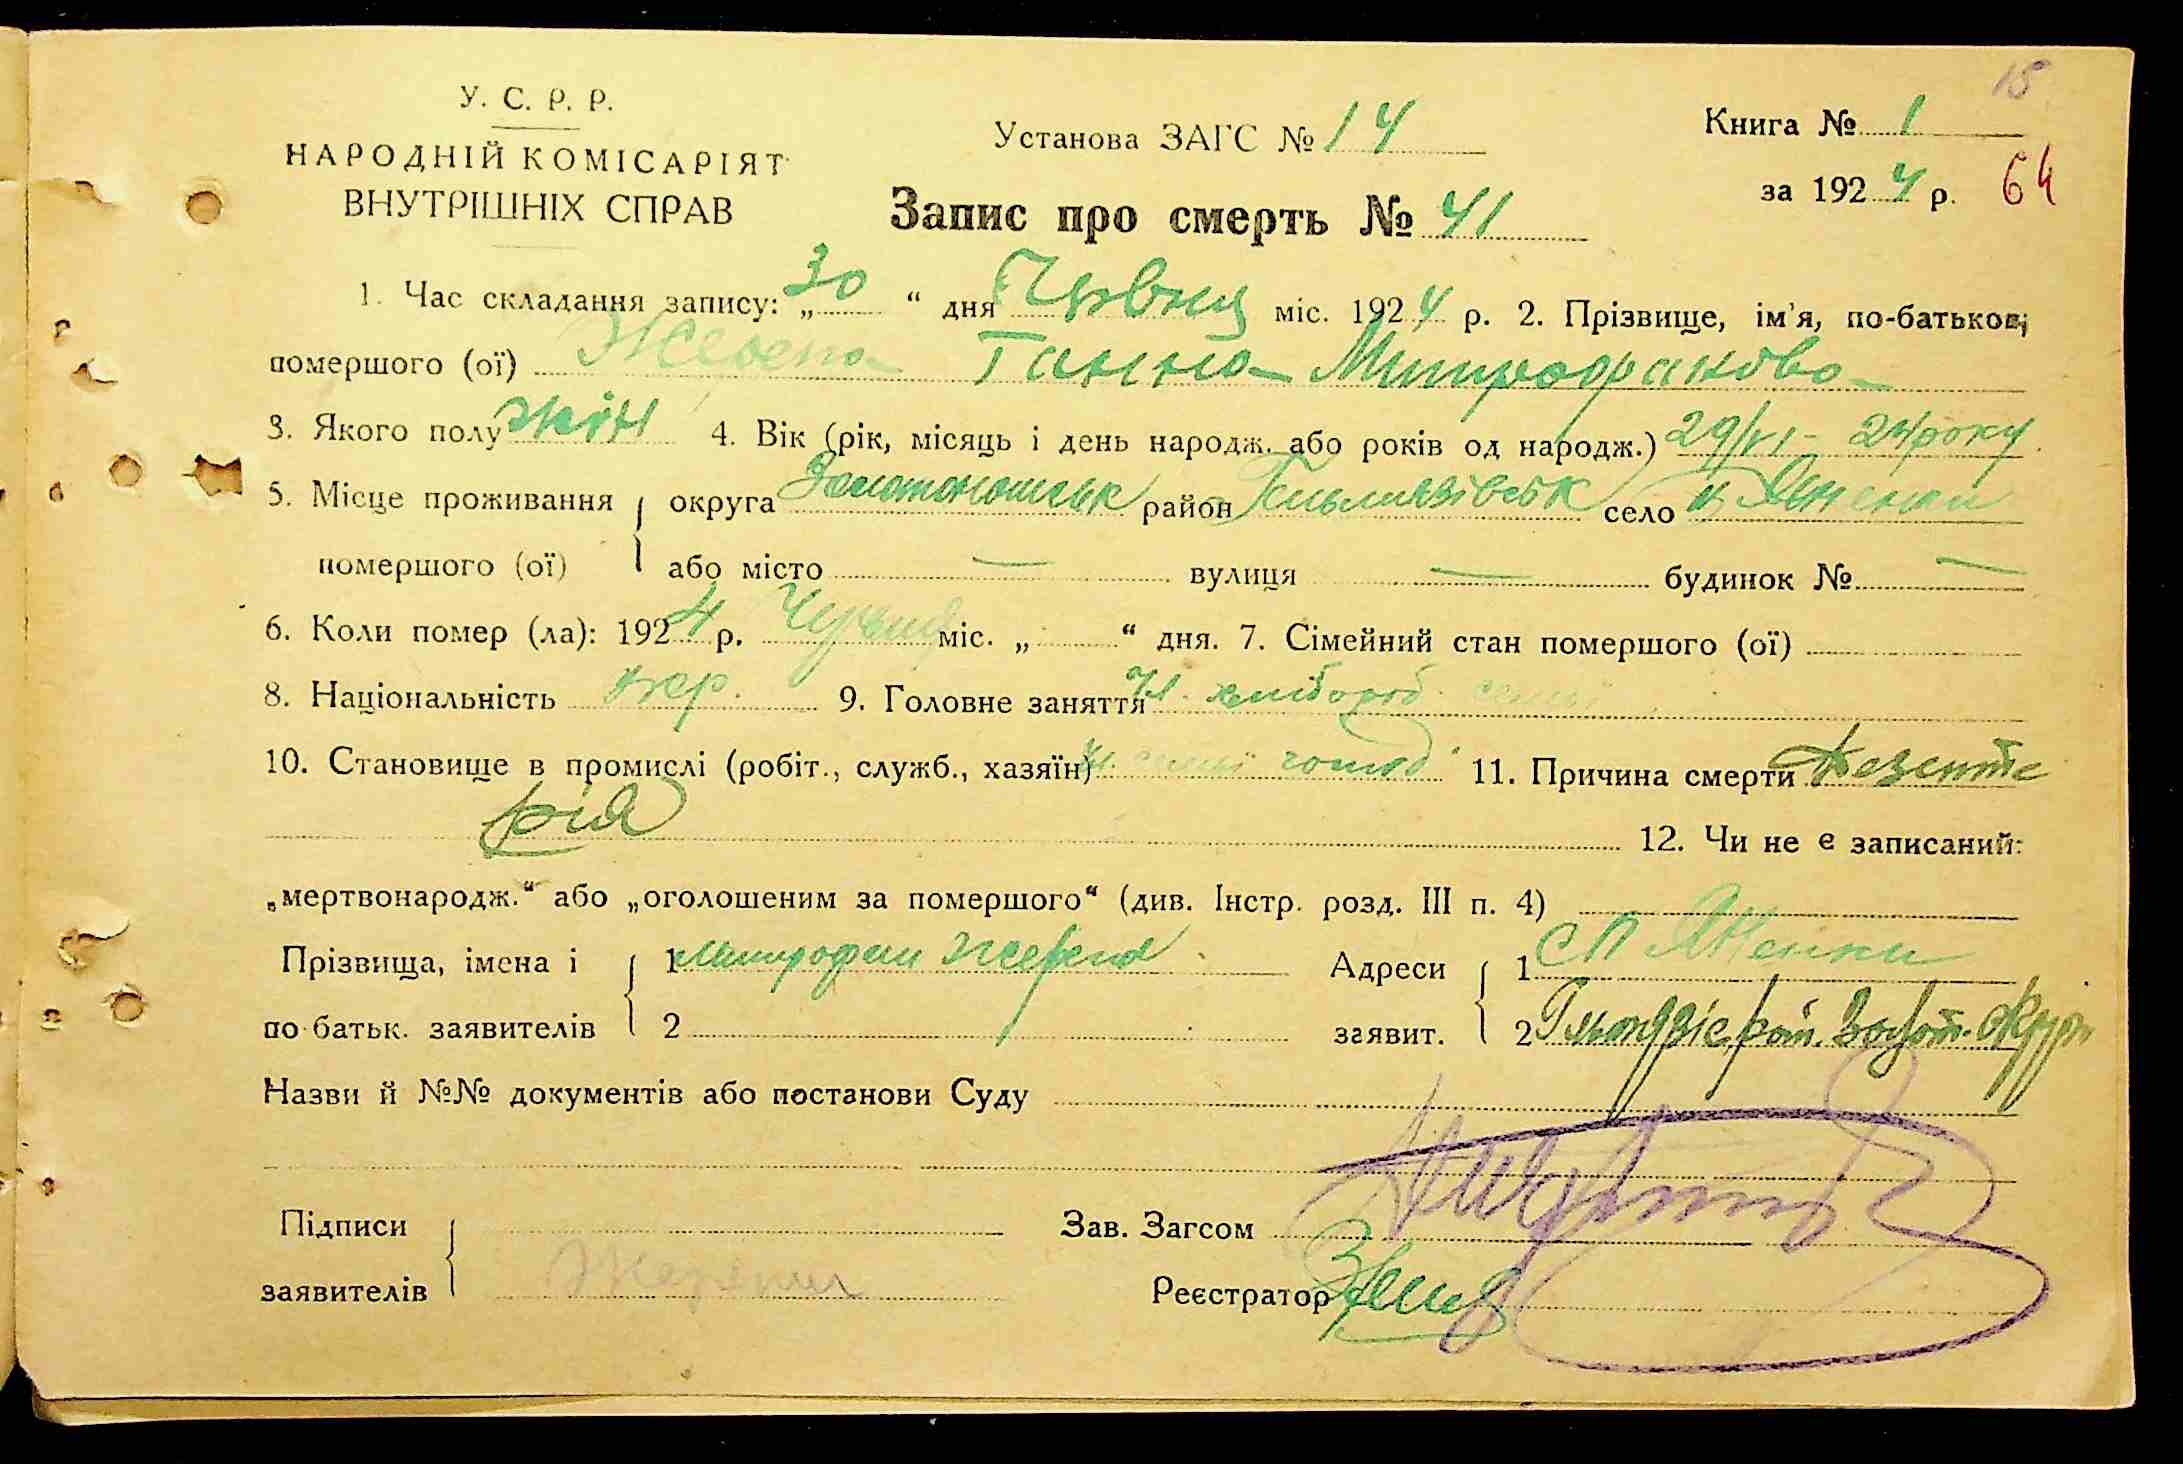 18
У. С. Р. Р.
НАРОДНІЙ КОМІСАРІЯТ
ВНУТРІШНІХ СПРАВ
Установа ЗАГС № 14
Книга № 1
за 1924 р. 64
Запис про смерть № 41
1. Час складання запису: „30“ дня Червня міс. 1924 р. 2. Прізвище, ім'я, по-батькові
помершого (ої) Ганна Митрофанова
3. Якого полу жін 4. Вік (рік, місяць і день народж. або років од народж.) 29/VI - 24 року
5. Місце проживання округа Золотоношськ район Гельмязівськ село
помершого (ої) або місто — вулиця — будинок № —
6. Коли помер (ла): 1924 р. Червня міс. „ “ дня. 7. Сімейний стан помершого (ої)
8. Національність укр. 9. Головне заняття чл. хлібороб. семьї
10. Становище в промислі (робіт., служб., хазяїн) чл. семьї 11. Причина смерти Дезенте
рія
12. Чи не є записаний:
„мертвонародж.“ або „оголошеним за помершого“ (див. Інстр. розд. III п. 4)
Прізвища, імена і 1 Митрофан Адреси 1
по батьк. заявителів 2 заявит. 2
Назви й №№ документів або постанови Суду
Підписи Зав. Загсом
заявителів Реєстратор